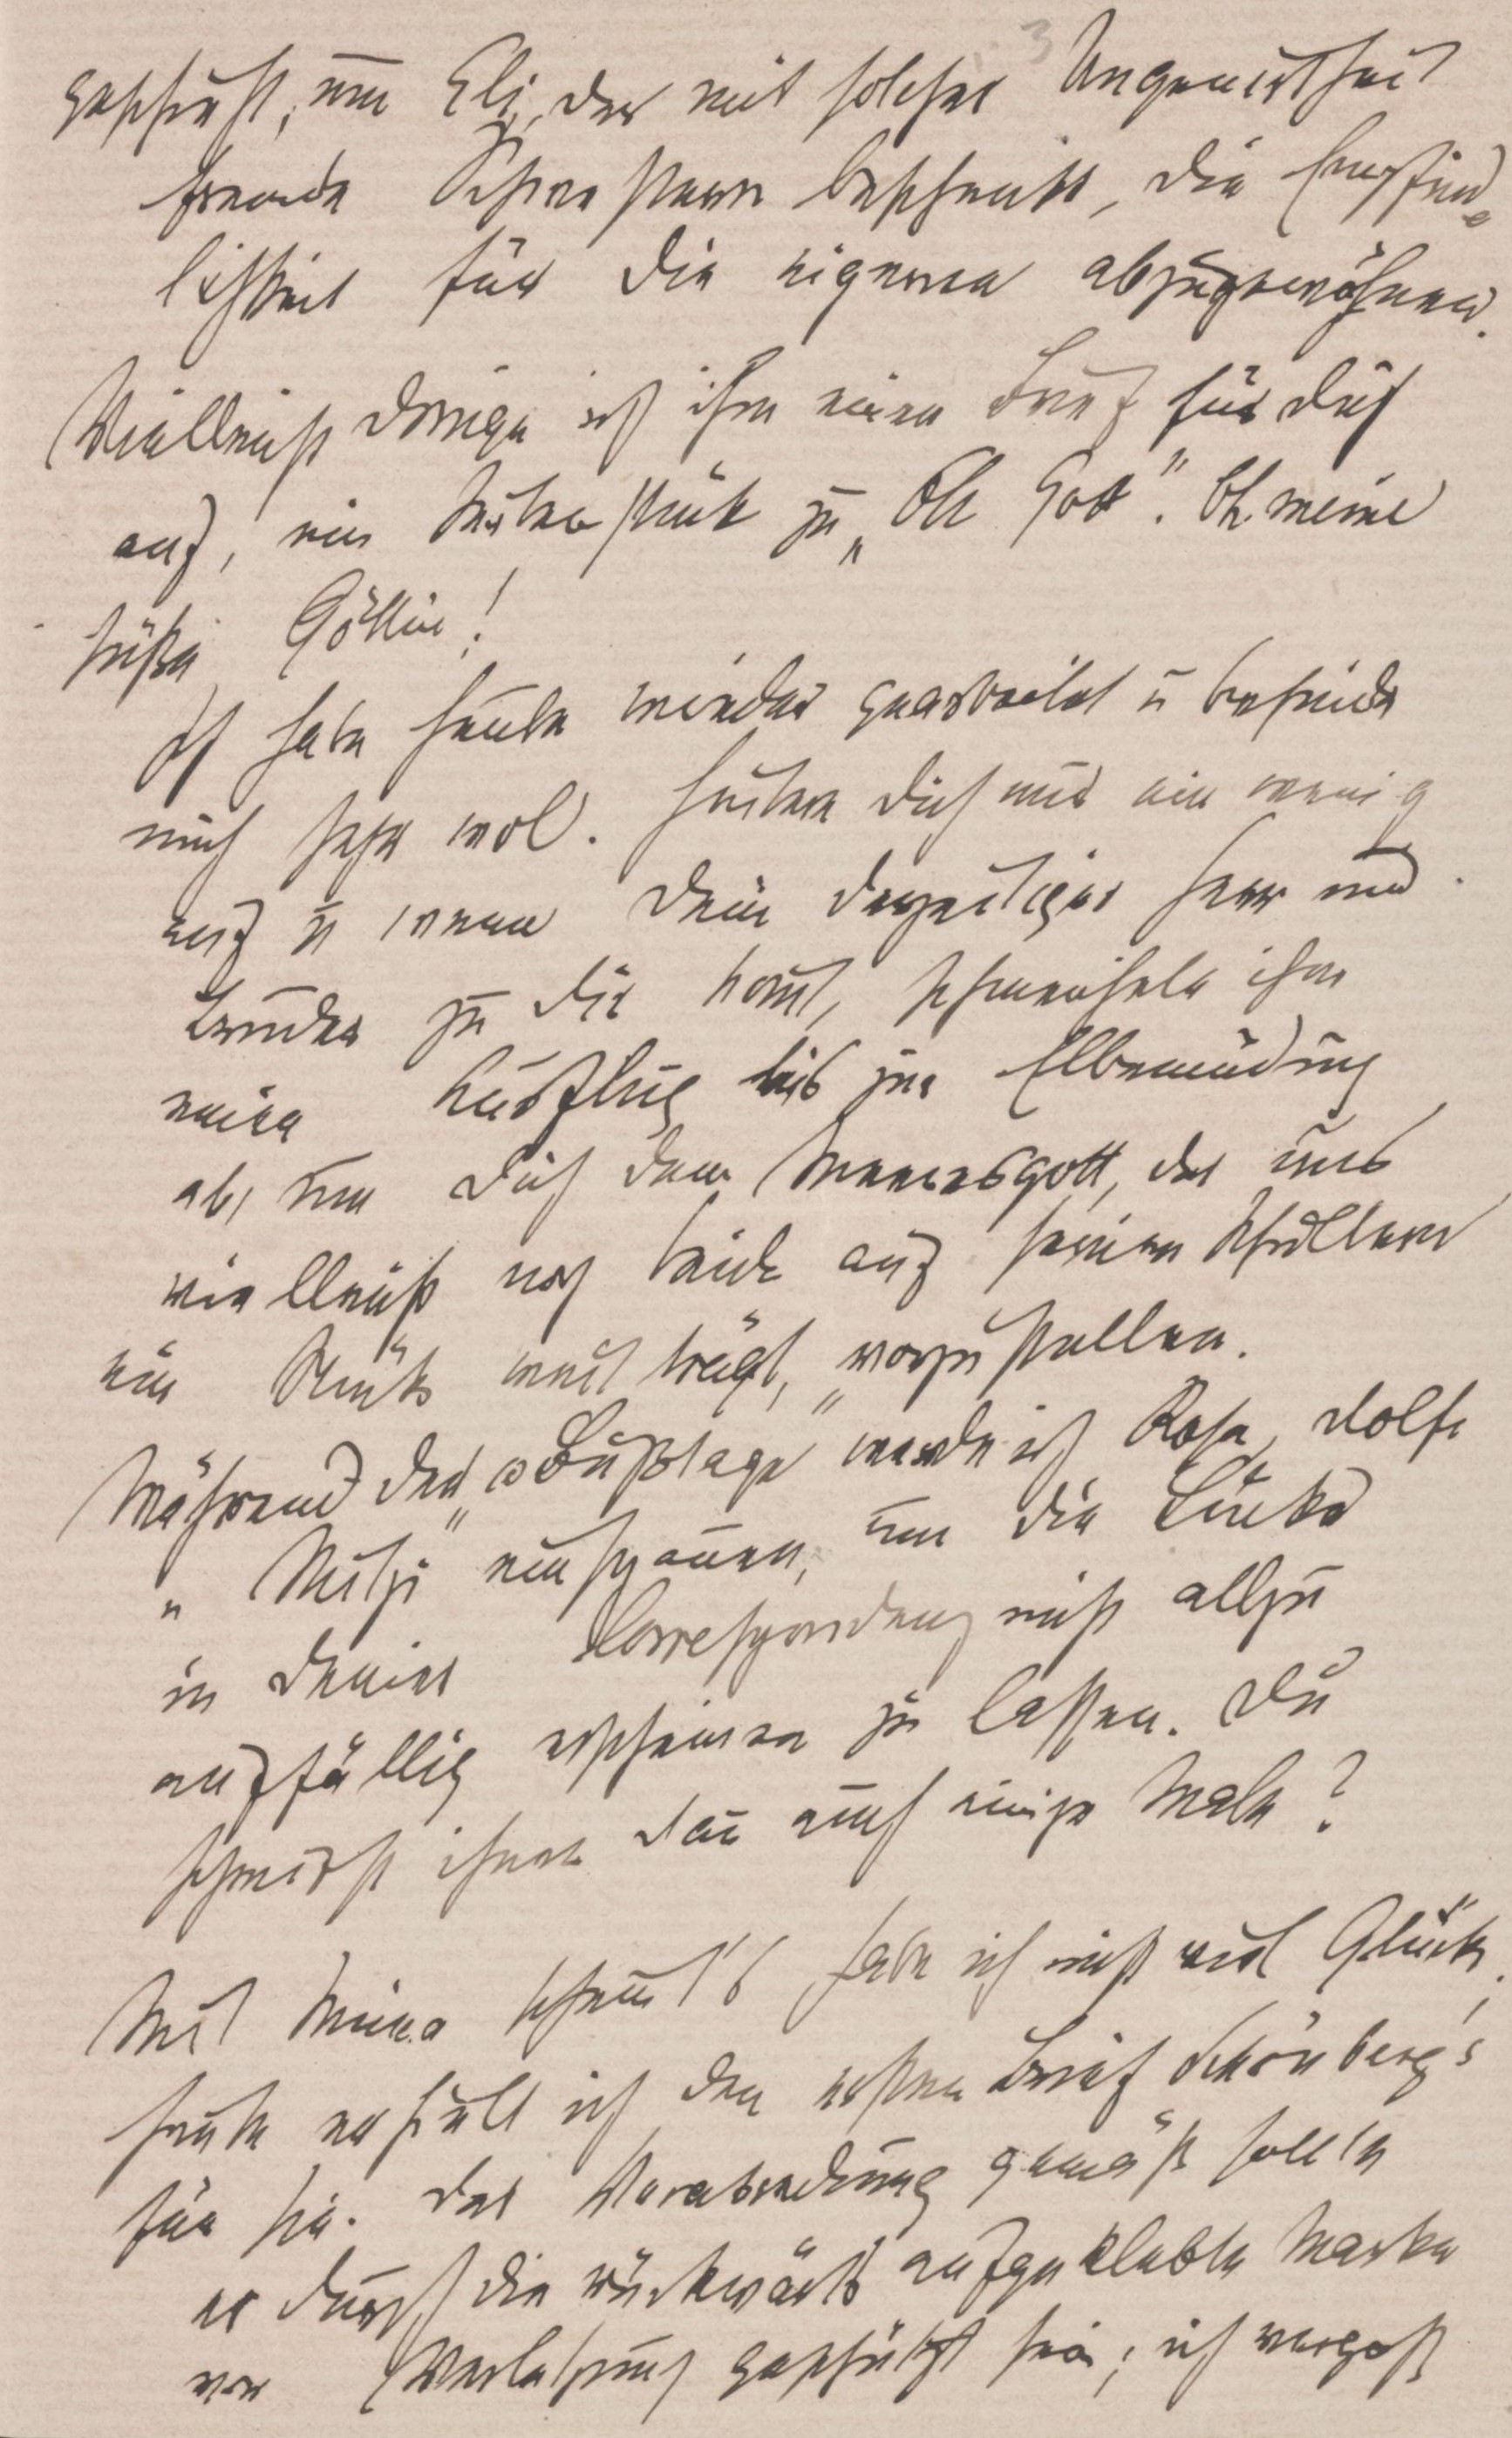 3
geschieht, um Eli, der mit solcher Ungenirtheit
fremde Schwestern beschenkt, die Empfind-
lichkeit für die eigenen abzugewöhnen.
Vielleicht dränge ich ihm einen Brief für Dich
auf, ein Seitenstück zu „Oh Gott“. Oh meine
süße Göttin!
Ich habe heute wieder gearbeitet u befinde
mich sehr wol. Heitere Dich nur ein wenig
auf u wenn Dein derzeitiger Herr und
Bruder zu Dir komt, schmeichele ihm
einen Ausflug bis zur Elbemündung
ab, um Dich dem Meeresgott, der uns
vielleicht noch beide auf seinen Schultern
ein Stück weit trägt, vorzustellen.
Während der „Bußtage“ werde ich Rosa, Dolfi
u Mitzi einspannen, um die Lücke
in Deiner Korrespondenz nicht allzu
auffällig erscheinen zu lassen. Du
schreibst ihnen dan auch einige Male?
Mit Mina scheint's habe ich nicht viel Glück.
Heute erhielt ich den ersten Brief Schönberg's
für sie. Der Verabredung gemäß sollte
er durch die rückwärts aufgeklebte Marke
vor Verletzung geschützt sein; ich vergaß